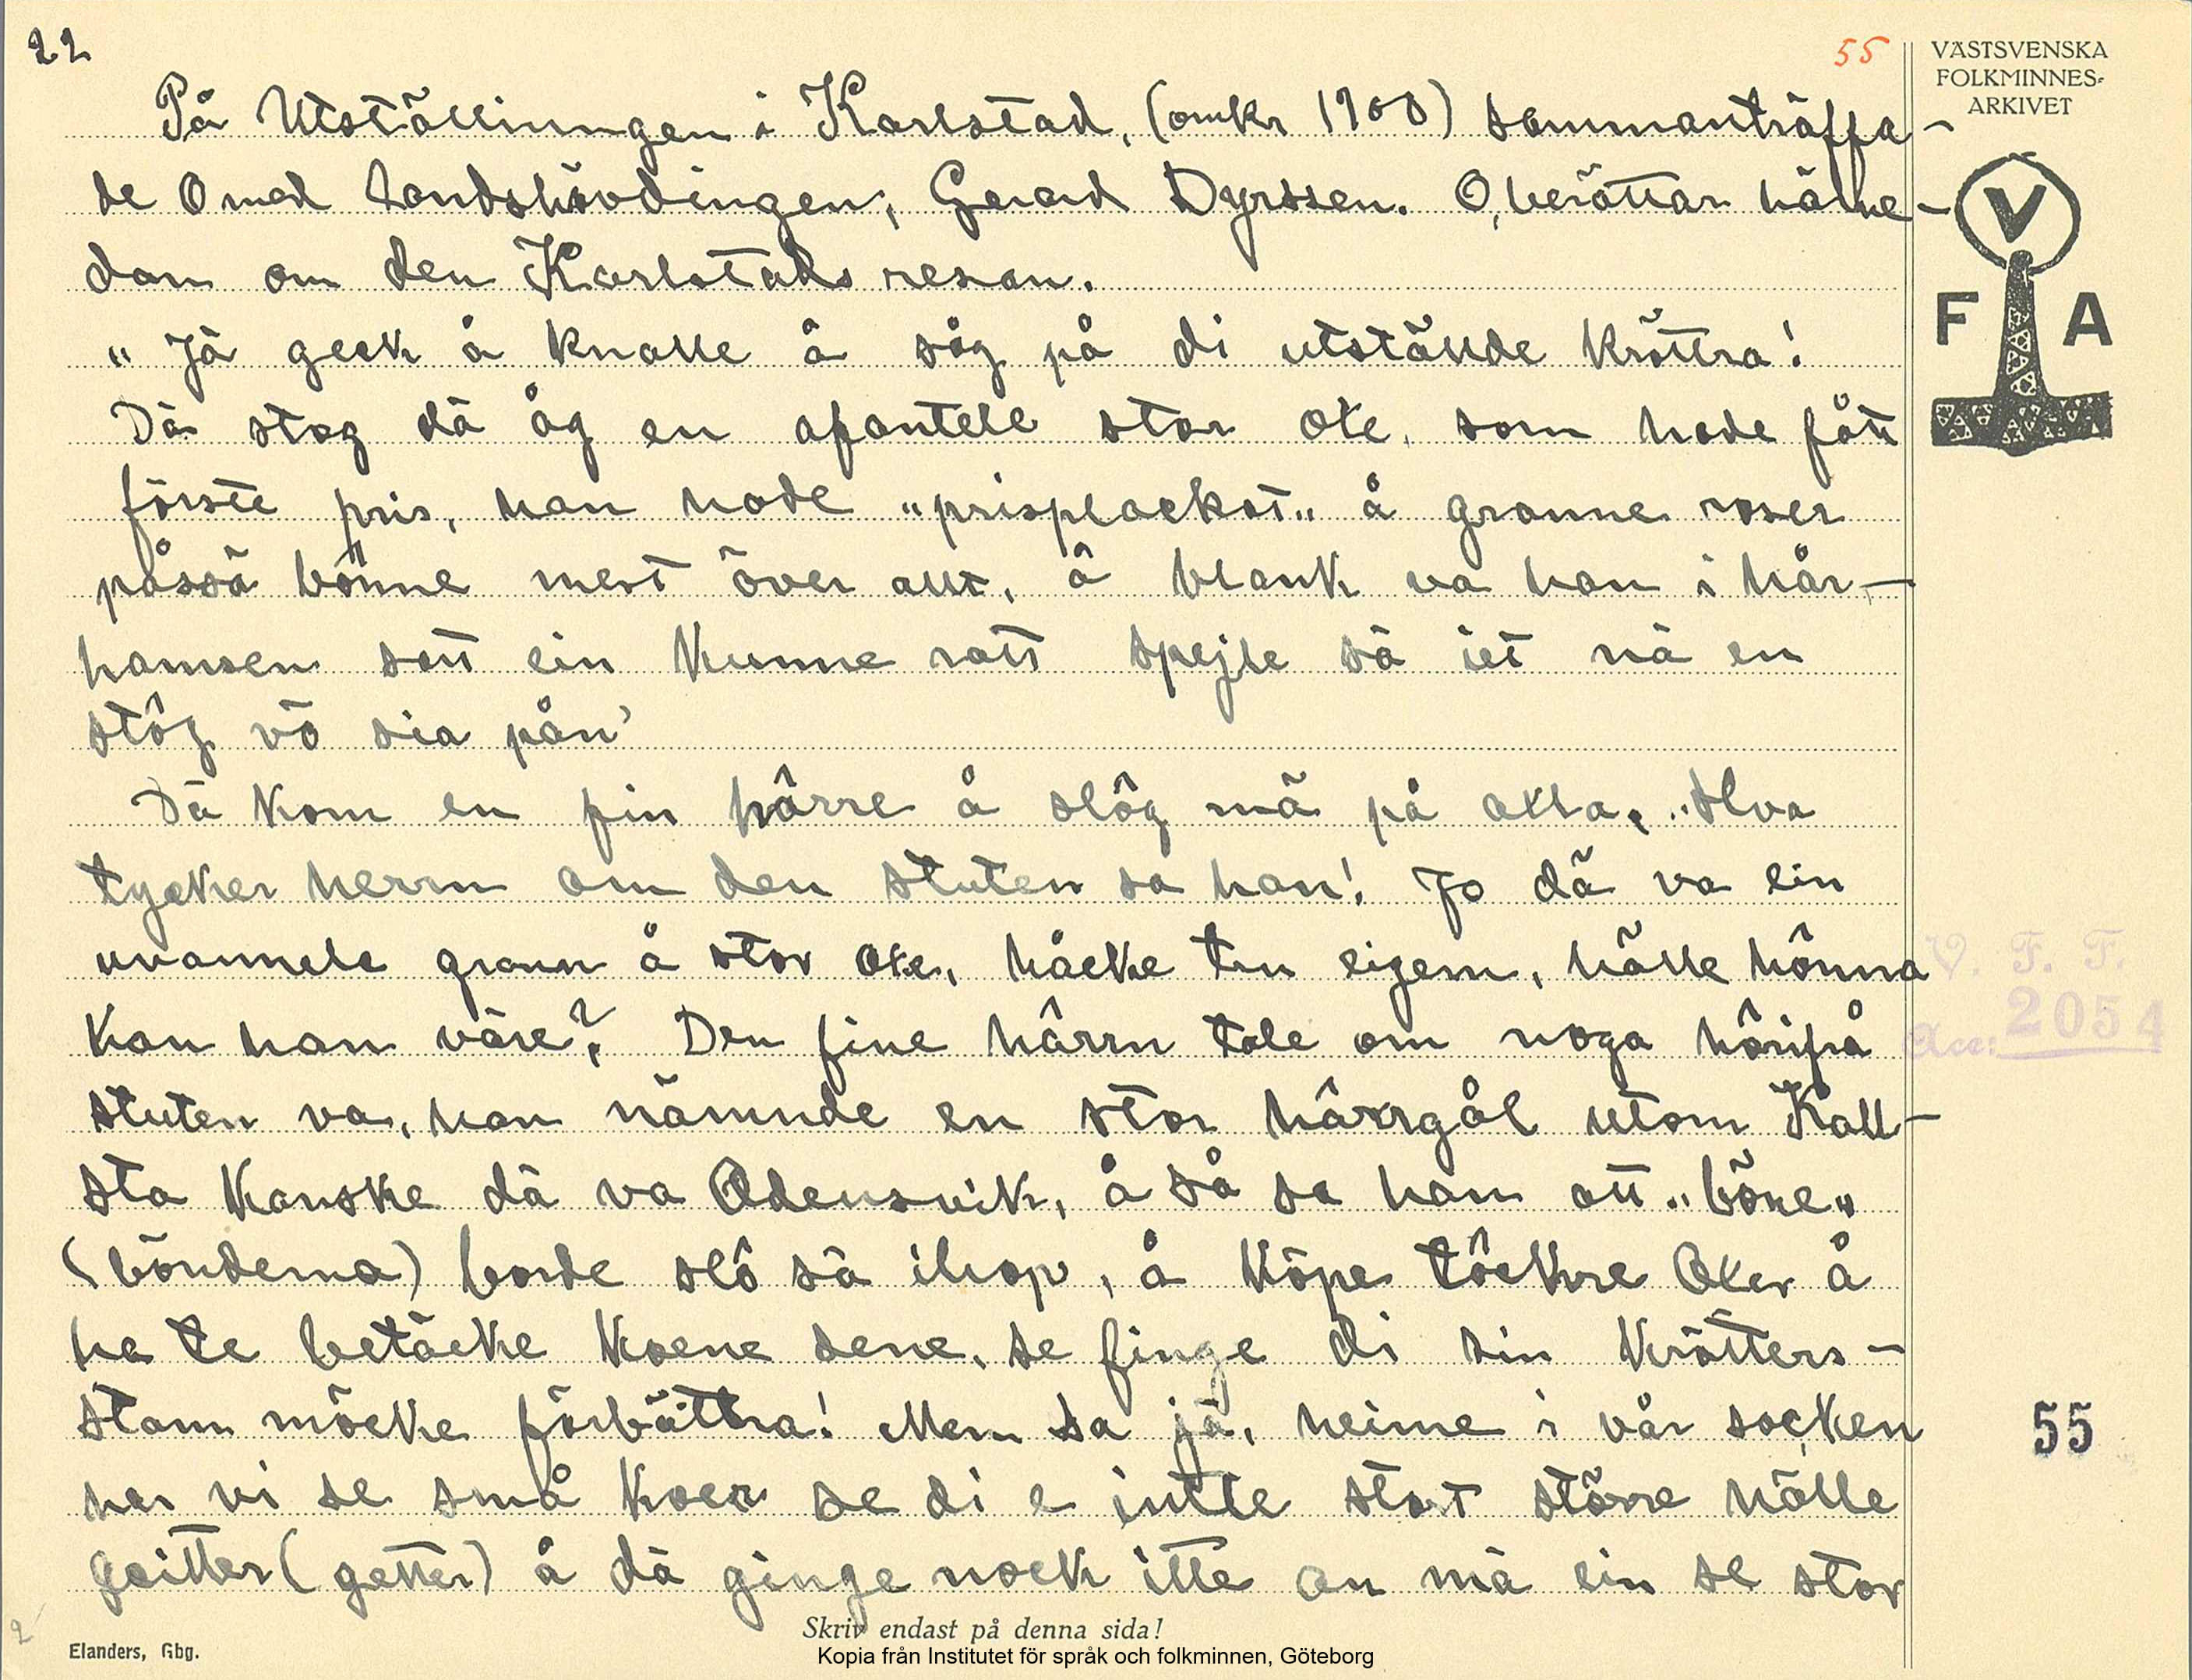 22
55
VÄSTSVENSKA
FOLKMINNES-
ARKIVET
På Utställinngen i Karlstad, (omkr 1900) sammanträffa-
de O med Landshövdingen, Gerard Dyrssen. O, berättar häme-
dan om den Karlstads resan.
V
F A
"Jä geck å knalle å såg på di utställde kröttra!
Dä stog dä åg en apantele stor oxe, som hade fått
förste pris, han hade "prisplackat" å granne roser
påssä bönne mest över allt, å blank va han i hår-
hamsen satt ein kunne ratt spejle sä iet nä en
stôg vö sia pån'
Dä kom en fin hârre å slôg mä på axla, "Hva
tycker herrn om den stuten sa han! Jo dä va ein
uvannele grann å stor oxe, håcke tru eigern, hälle hônna
V. F. F.
kan han väre? Den fine hârrn tale om noga hôrifrå
Acc: 2054
stuten va, han nämnde en stor hârrgål utom Kall-
sta kanske dä va Odensvik, å så sa han att "böne"
(bönderna) borde slô sä ihop, å köpe tôckre Oxer å
ha te betäcke koene sene, se finge di sin krötters-
stam möcke förbättra! Men sa jä, heime i vår socken
55
har vi se små koer se di e intte stort större hälle
geitter (getter) å dä ginge nock itte an mä ein se stor
Skriv endast på denna sida!
Elanders, Gbg.
Kopia från Institutet för språk och folkminnen, Göteborg